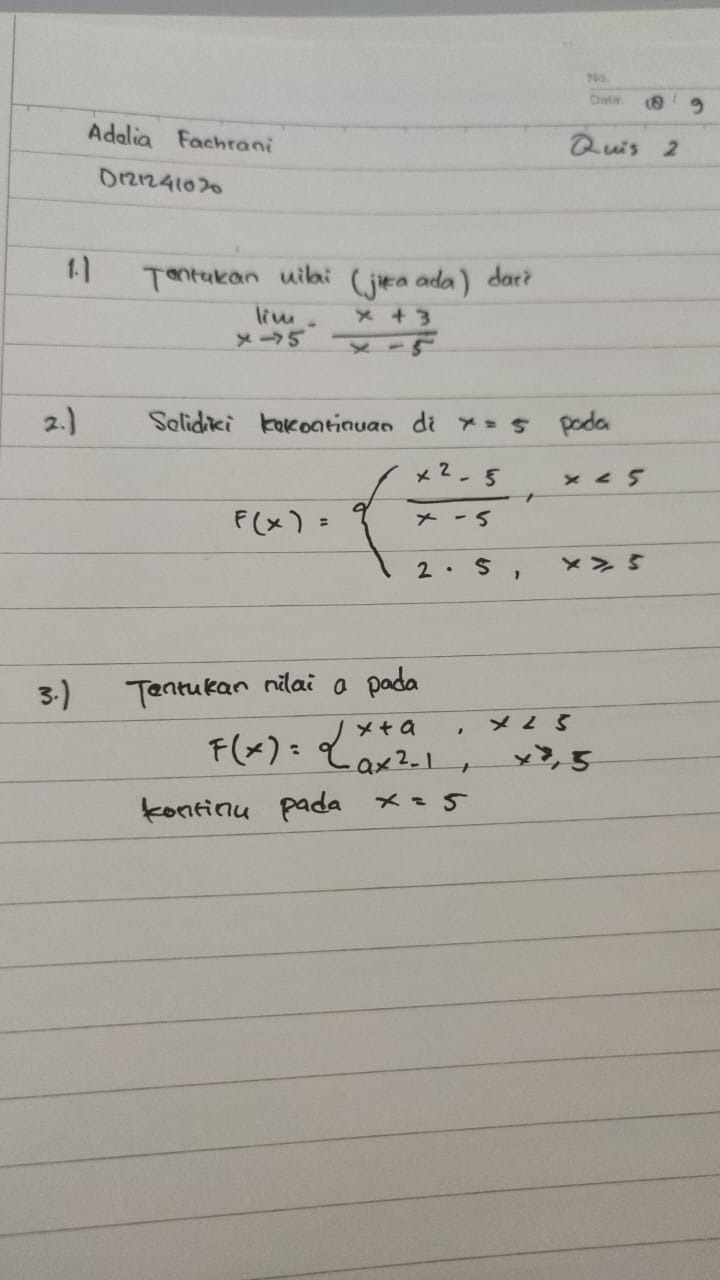 No.
Date. 18 / 9
Adelia Fachrani
Quis 2
D121241070
1.) Tentukan nilai (jika ada) dari
lim x→5⁻ (x + 3)/(x - 5)
2.) Selidiki kekontinuan di x = 5 pada
F(x) = { (x² - 5)/(x - 5) , x < 5
2 . 5 , x ≥ 5
3.) Tentukan nilai a pada
F(x) = { x + a , x < 5
ax² - 1 , x ≥ 5
kontinu pada x = 5